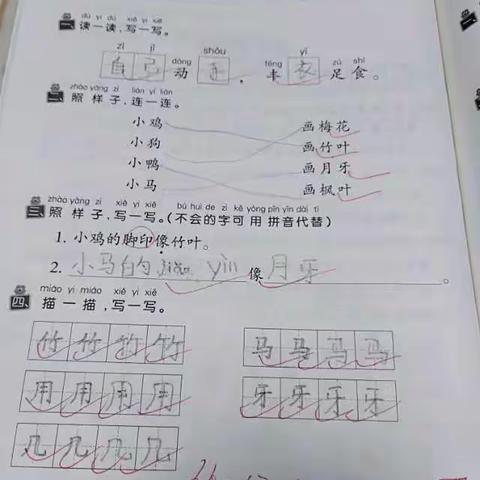 dú yi dú xiě yi xiě
一 读一读,写一写。
zì jǐ dòng shǒu fēng yī zú shí
自己动手,丰衣足食。
zhào yàng zi lián yi lián
二 照样子,连一连。
小鸡 画梅花
小狗 画竹叶
小鸭 画月牙
小马 画枫叶
zhào yàng zi xiě yi xiě bú huì de zì kě yòng pīn yīn dài tì
三 照样子,写一写。(不会的字可用拼音代替)
1. 小鸡的脚印像竹叶。
2. 小马的jiǎo yìn像月牙。
miáo yi miáo xiě yi xiě
四 描一描,写一写。
竹竹竹竹 马马马马
用用用用 牙牙牙牙
几几几几